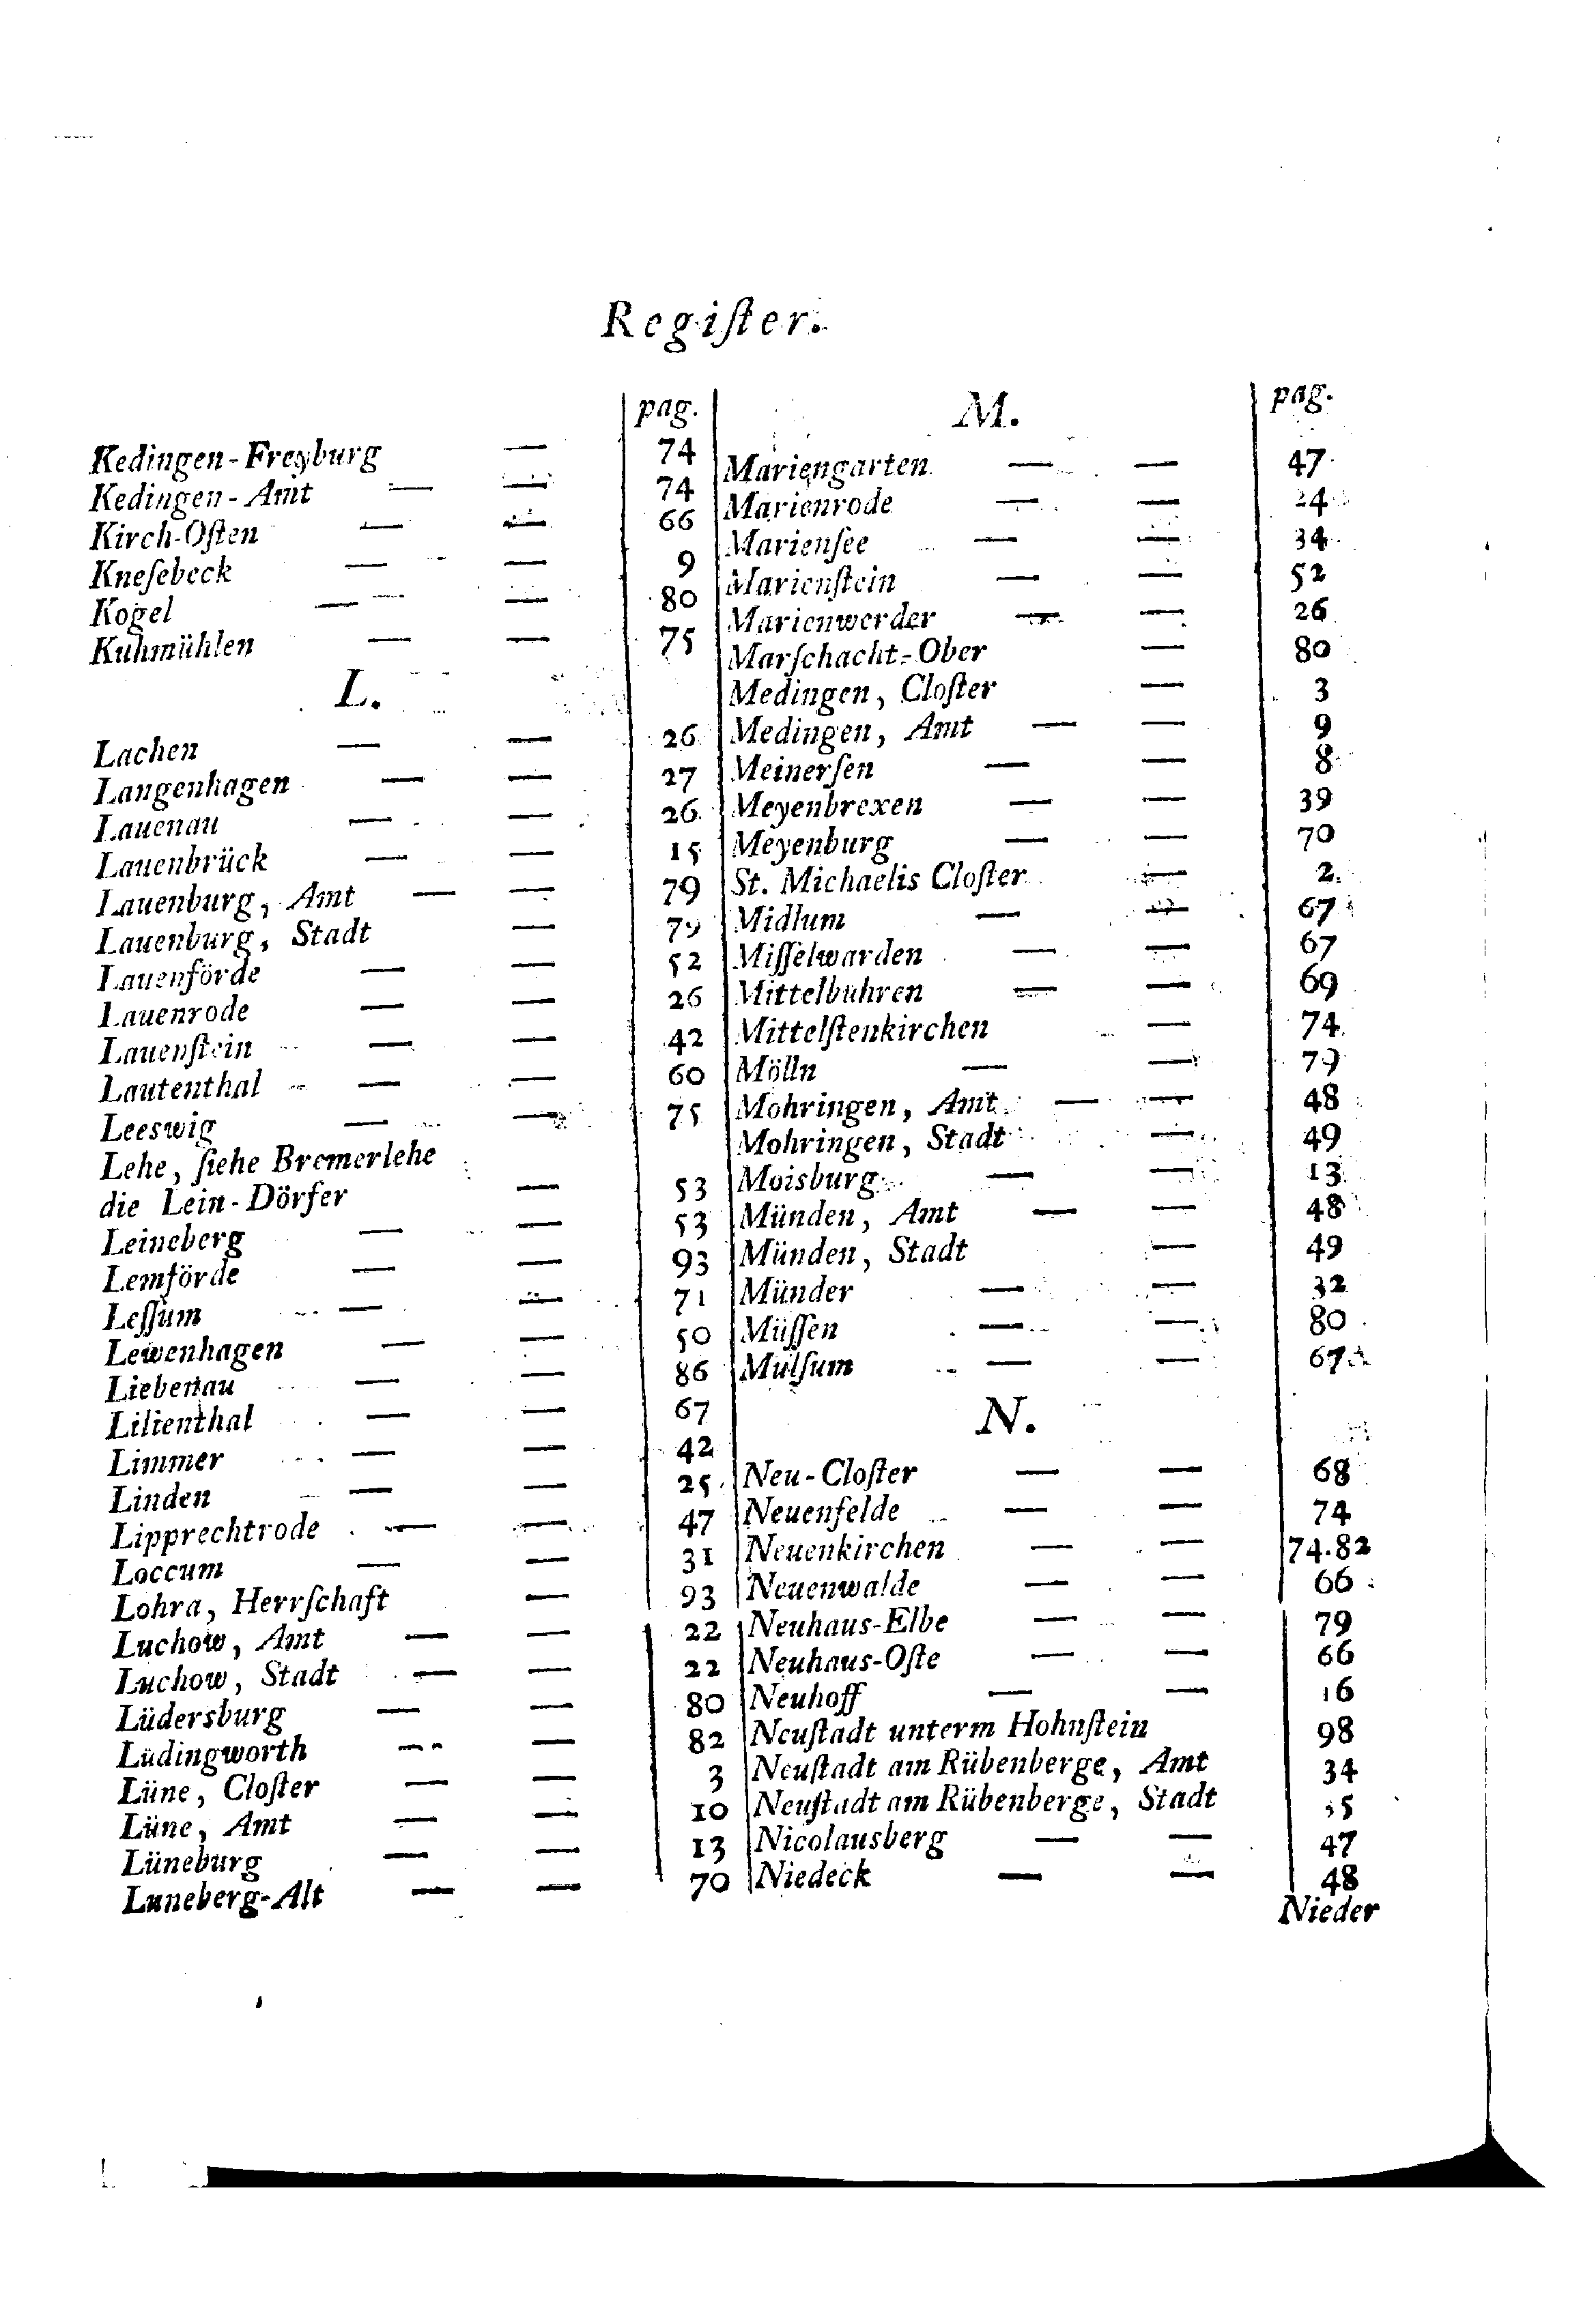 Regiſter.
pag.
Kedingen-Freyburg — 74
Kedingen-Amt — — 74
Kirch-Oſten — — 66
Kneſebeck — — 9
Kogel — — 80
Kuhmühlen — — 75
L.
Lachen — — 26
Langenhagen — — 27
Lauenau — — 26
Lauenbrück — — 15
Lauenburg, Amt — — 79
Lauenburg, Stadt — 79
Lauenförde — — 52
Lauenrode — — 26
Lauenſtein — — 42
Lautenthal — — 60
Leeswig — — 75
Lehe, ſiehe Bremerlehe
die Lein-Dörfer — 53
Leineberg — — 53
Lemförde — — 93
Leſſum — — 71
Lewenhagen — — 50
Liebenau — — 86
Lilienthal — — 67
Limmer — — 42
Linden — — 25
Lipprechtrode — — 47
Loccum — — 31
Lohra, Herrſchaft — 93
Luchow, Amt — — 22
Luchow, Stadt — — 22
Lüdersburg — — 80
Ludingworth — — 82
Lüne, Cloſter — — 3
Lüne, Amt — — 10
Lüneburg — — 13
Luneberg-Alt — — 70
M.
pag.
Mariengarten — — 47
Marienrode — — 24
Marienſee — — 34
Marienſtein — — 52
Marienwerder — — 26
Marſchacht-Ober — 80
Medingen, Cloſter — 3
Medingen, Amt — — 9
Meinerſen — — 8
Meyenbrexen — — 39
Meyenburg — — 70
St. Michaelis Cloſter — 2
Midlum — — 67
Miſſelwarden — — 67
Mittelbuhren — — 69
Mittelſtenkirchen — 74
Mölln — — 79
Mohringen, Amt — — 48
Mohringen, Stadt — 49
Moisburg — — 13
Münden, Amt — — 48
Münden, Stadt — 49
Münder — — 32
Müſſen — — 80
Mulſum — — 67
N.
Neu-Cloſter — — 68
Neuenfelde — — 74
Neuenkirchen — — 74.82
Neuenwalde — — 66
Neuhaus-Elbe — — 79
Neuhaus-Oſte — — 66
Neuhoff — — 16
Neuſtadt unterm Hohnſtein 98
Neuſtadt am Rübenberge, Amt 34
Neuſtadt am Rübenberge, Stadt
Nicolausberg — — 47
Niedeck — — 48
Nieder